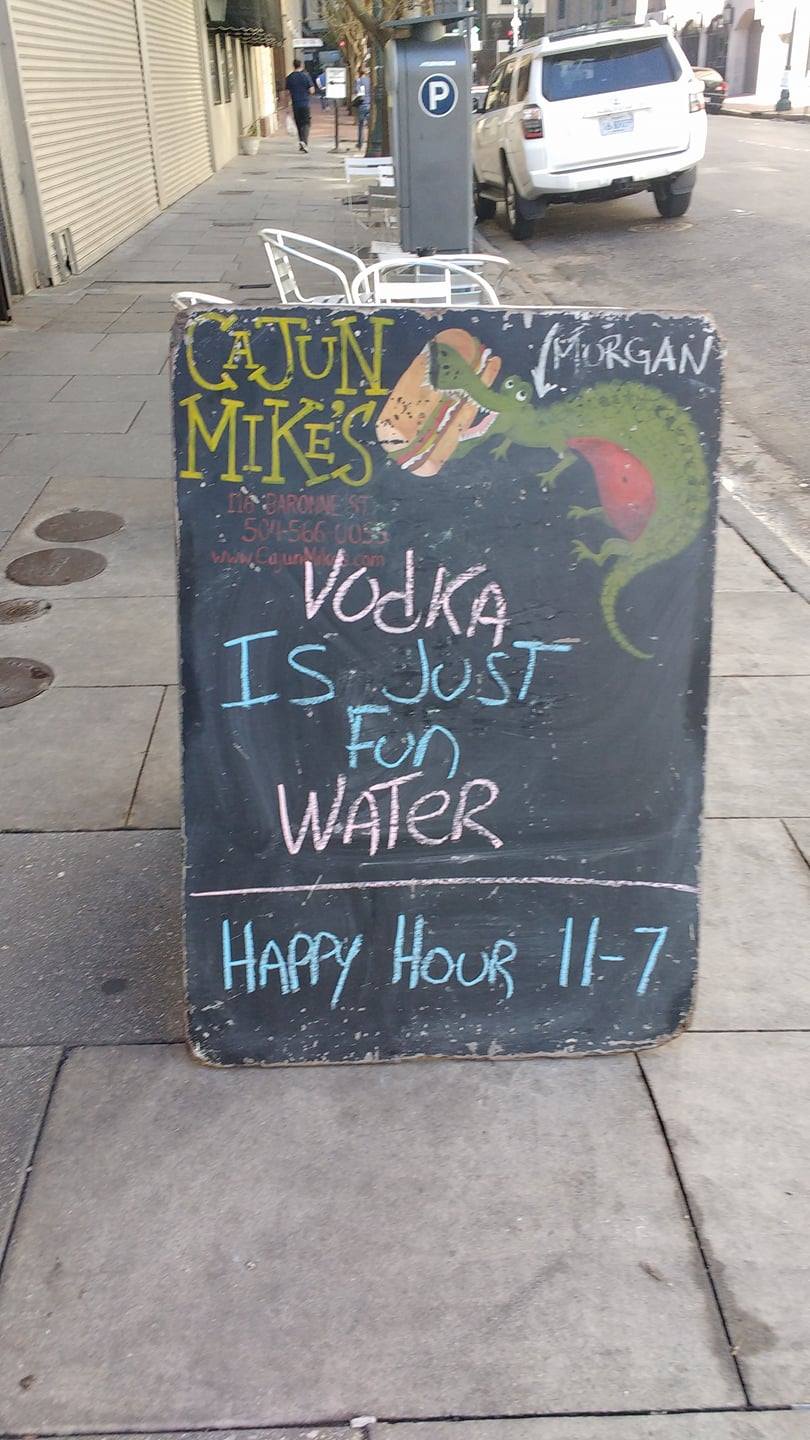 P
CAJUN
MIKE'S
MORGAN
116 BARONNE ST.
504-566-0055
www.CajunMikes.com
VODKA
IS JUST
FUN
WATER
HAPPY HOUR 11-7